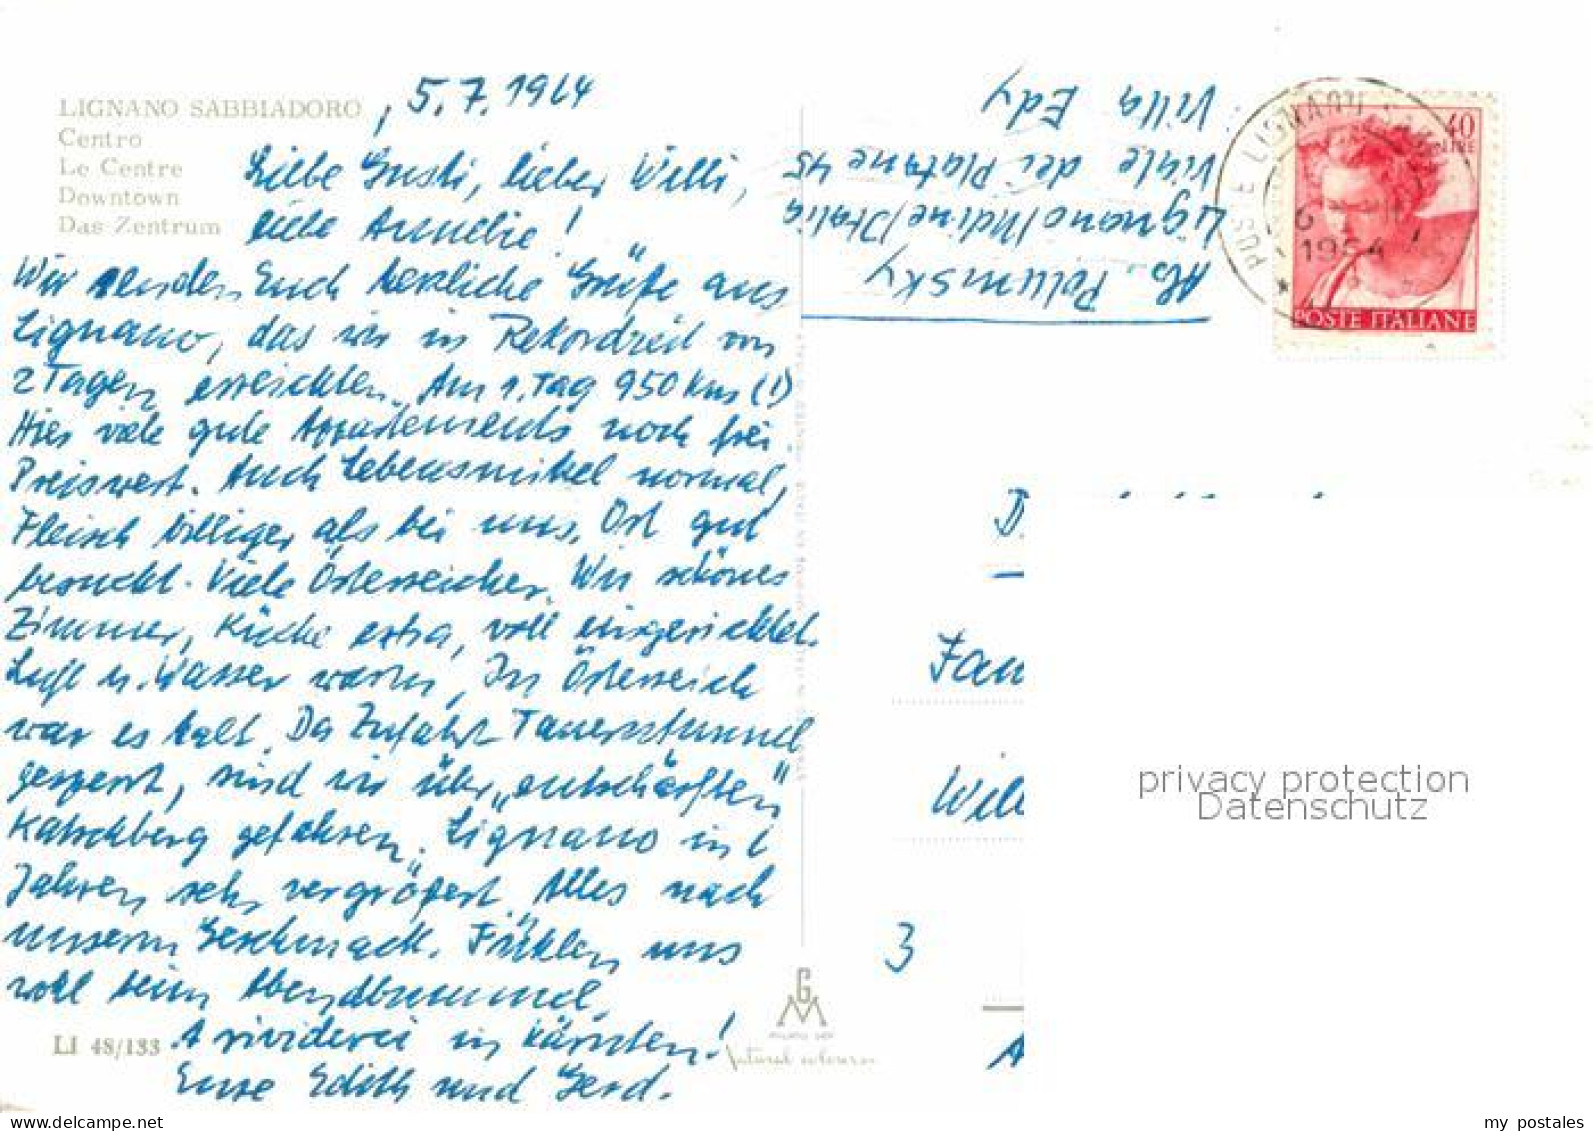 LIGNANO SABBIADORO
Centro
Le Centre
Downtown
Das Zentrum
, 5.7.1964
Liebe Gusti, lieber Willi,
liebe Annelie!
Wir senden Euch herzliche Grüße aus
Lignano, das wir in Rekordzeit von
2 Tagen erreichten. Am 1. Tag 950 km (!)
Hier viele gute Appartements noch frei.
Preiswert. Auch Lebensmittel normal,
Fleisch billiger als bei uns. Ort gut
besucht. Viele Österreicher. Wir schönes
Zimmer, Küche extra, voll eingerichtet.
Luft u. Wasser warm. In Österreich
war es kalt. Da Zufahrt Tauerntunnel
gesperrt, sind wir über „entschärften"
Katschberg gefahren. Lignano in 6
Jahren sehr vergrößert. Alles nach
unserm Geschmack. Fühlen uns
wohl beim Abendbummel.
Arividerci in Kärnten!
Eure Edith und Gerd.
LI 48/133
Ab. Polumsky
Lignano/Udine/Italia
Viale dei Platane 45
Villa Edy
POSTE LIGNANO
6
1964
40
LIRE
POSTE ITALIANE
D
Fam
Will
3
A
G
M
natural colours
privacy protection
Datenschutz
my_postales